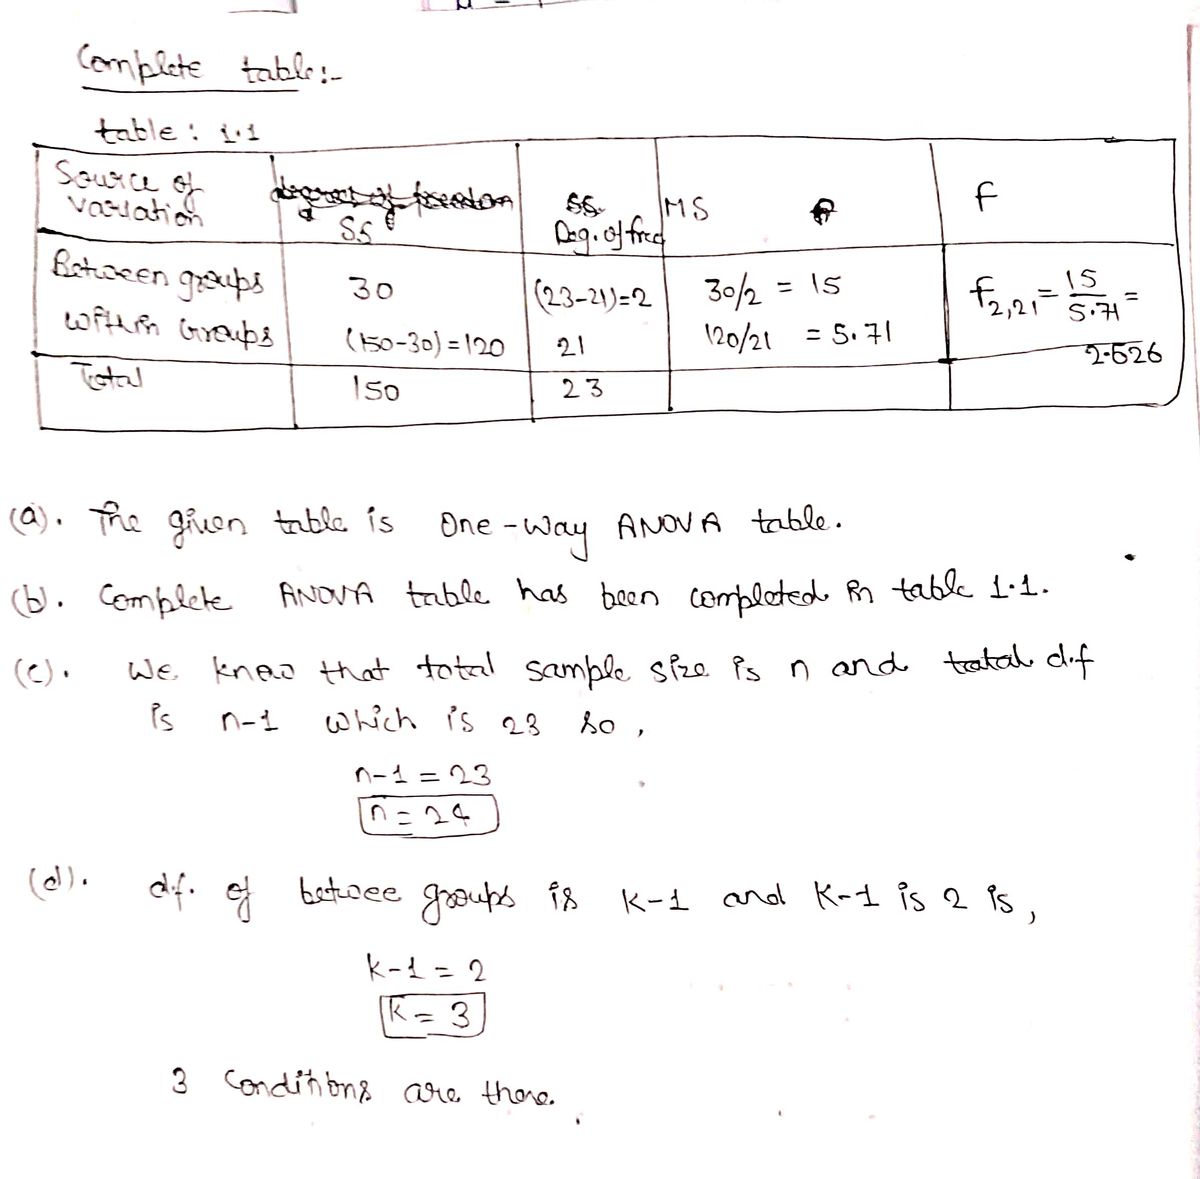 Complete table:-
table : 1.1
Source of variation SS Deg. of fred MS F
Between groups 30 (23-21)=2 30/2 = 15 F2,21 = 15/5.71 = 2.626
within Groups (150-30)=120 21 120/21 = 5.71
Total 150 23
(a). The given table is One-way ANOVA table.
(b). Complete ANOVA table has been completed in table 1.1.
(c). We know that total sample size is n and total d.f
is n-1 which is 23 so ,
n-1 = 23
n = 24
(d). d.f. of betwee groups is k-1 and k-1 is 2 is,
k-1 = 2
k = 3
3 Conditions are there.